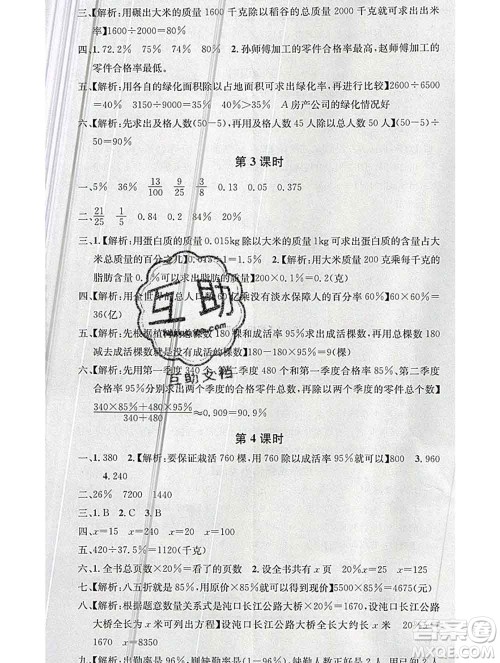 三、【解析:用碾出大米的质量 1600 千克除以稻谷的总质量 2000 千克,可以求出出米
率】1600÷2000=80%
四、1. 72.2% 75% 80% 90% 2. 孙师傅加工的零件合格率最高,赵师傅加工的
零件合格率最低。
五、【解析:用各自的绿化面积除以占地面积可求出绿化率,进行比较】2600÷6500
=40% 3150÷9000=35% 40%>35% A 房产公司的绿化情况好
六、【解析:先求出及格人数(50-5),再用及格人数除以总人数 50 人】(50-5)÷50
=90%
第 3 课时
一、5% 36% 13/100 9/25 3/8 0.13 0.05 0.375
二、21/25 1/5 0.84 0.2 84% 20%
三、1.【解析:用蛋白质的质量 0.015kg 除以大米的质量 1kg 可求出蛋白质的含量占大
米总质量的百分之几】0.015÷1=1.5% 2.【解析:用大米质量 200 克乘每千克的
脂肪含量 0.1%可以求出脂肪的质量】200×0.1%=0.2(克)
四、【解析:用全世界的总人口数 60 亿乘没有淡水保障人的百分率 60%】60×60%=
36(亿)
五、【解析:先根据植树的总棵数 180 棵和成活率 95%求出成活棵数,再用总棵数
减去成活棵数就是没有成活的棵数】180-180×95%=9(棵)
六、【解析:先用第一季度 340 个,第二季度 480 个和第一季度的合格率 85%、第二季度
合格率 95%分别求出两个季度的合格零件总数,再除以两个季度的零件总个数】
(340×85%+480×95%)/(340+480)≈0.909=90.9%
第 4 课时
一、1. 380 2.【解析:要保证栽活 760 棵,用 760 除以成活率 95%就可以】800 3. 960
二、26% 7200 1440
三、1. B 2. C 3. B
四、x=15 x=240 x=140 x=9
五、420÷37.5%=1120(千克)
六、1. 全书总页数×20%=看了的页数 2. 设全书共有 x 页 20%x=25 x=125
七、【解析:八五折就是 85%,用原价×85%就可以】5500×85%=4675(元)
八、【解析:根据题意数量关系式是沌口长江公路大桥×20%=
大桥全长为 x 米可列出方程】设沌口长江公路大桥全长为 x 米 20%x=
x=8350
互助
互助文档